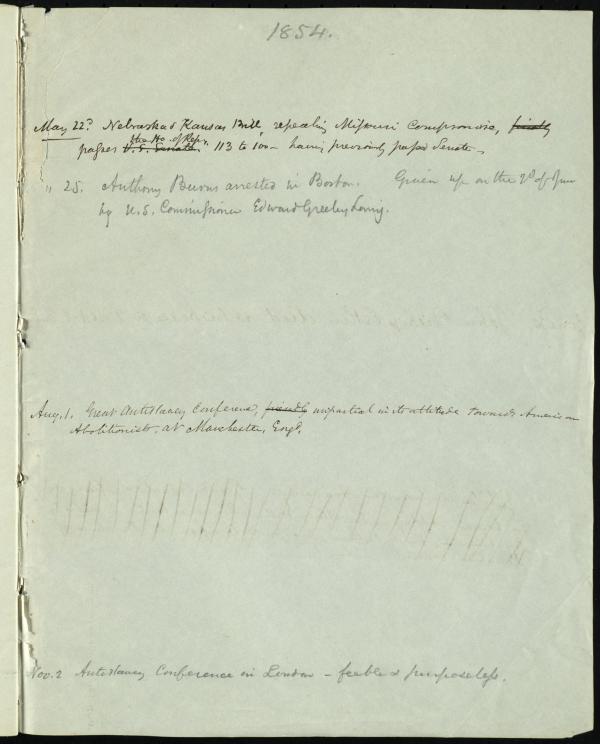 1854.
May 22d Nebraska & Kansas Bill, repealing Missouri Compromise, finally
the Ho. of Rep.
passes U.S. Senate. 113 to 100 – having previously passed Senate –
" 25. Anthony Burns arrested in Boston. Given up on the 2d of June
by U.S. Commissioner Edward Greeley Loring.
Aug. 1. Great Antislavery Conference, friendly impartial in its attitude towards American
Abolitionists, at Manchester, Engd.
Nov. 2 Antislavery Conference in London – feeble & purposeless.